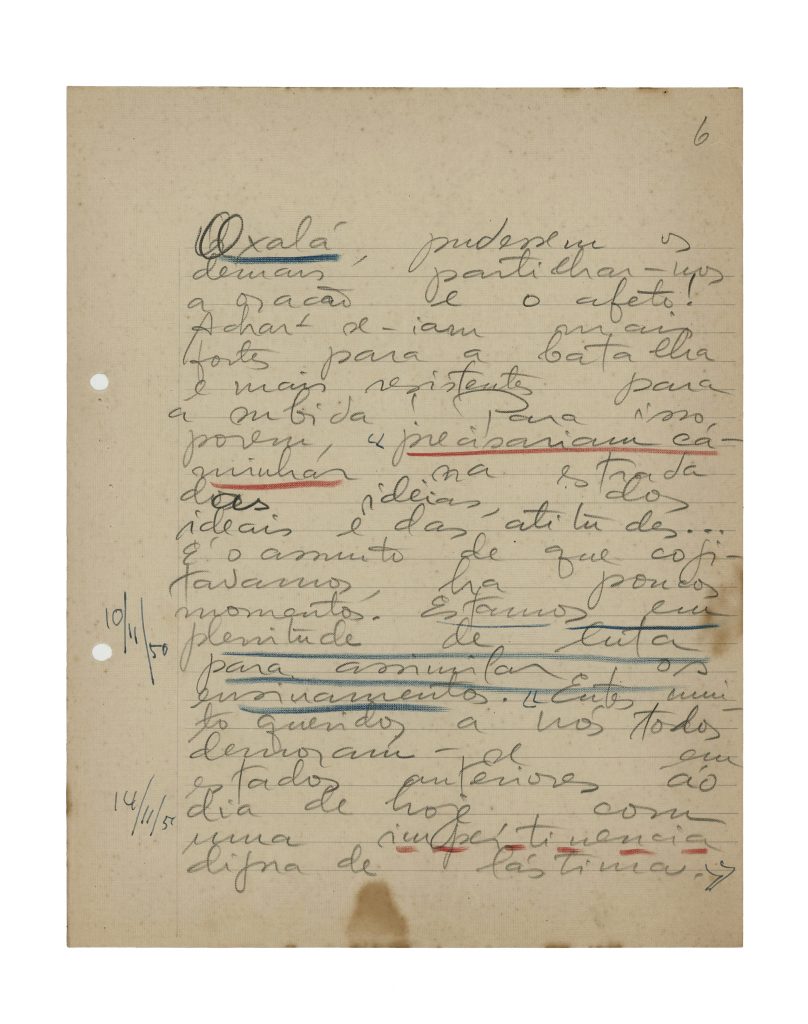 6
Oxalá, pudessem os
demais, partilhar-nos
a oração e o afeto!
Achar-se-iam mais
fortes para a batalha
e mais resistentes para
a subida! Para isso,
porem, "precisariam ca-
minhar na estrada
das idéias, dos
ideais e das atitudes...
É o assunto de que cogi-
távamos, ha poucos
momentos. Estamos em
10/11/50
plenitude de luta
para assimilar os
ensinamentos. "Entes mui-
to queridos a nós todos
demoram-se em
estados anteriores ao
14/11/50
dia de hoje, com
uma impertinencia
digna de lástima."